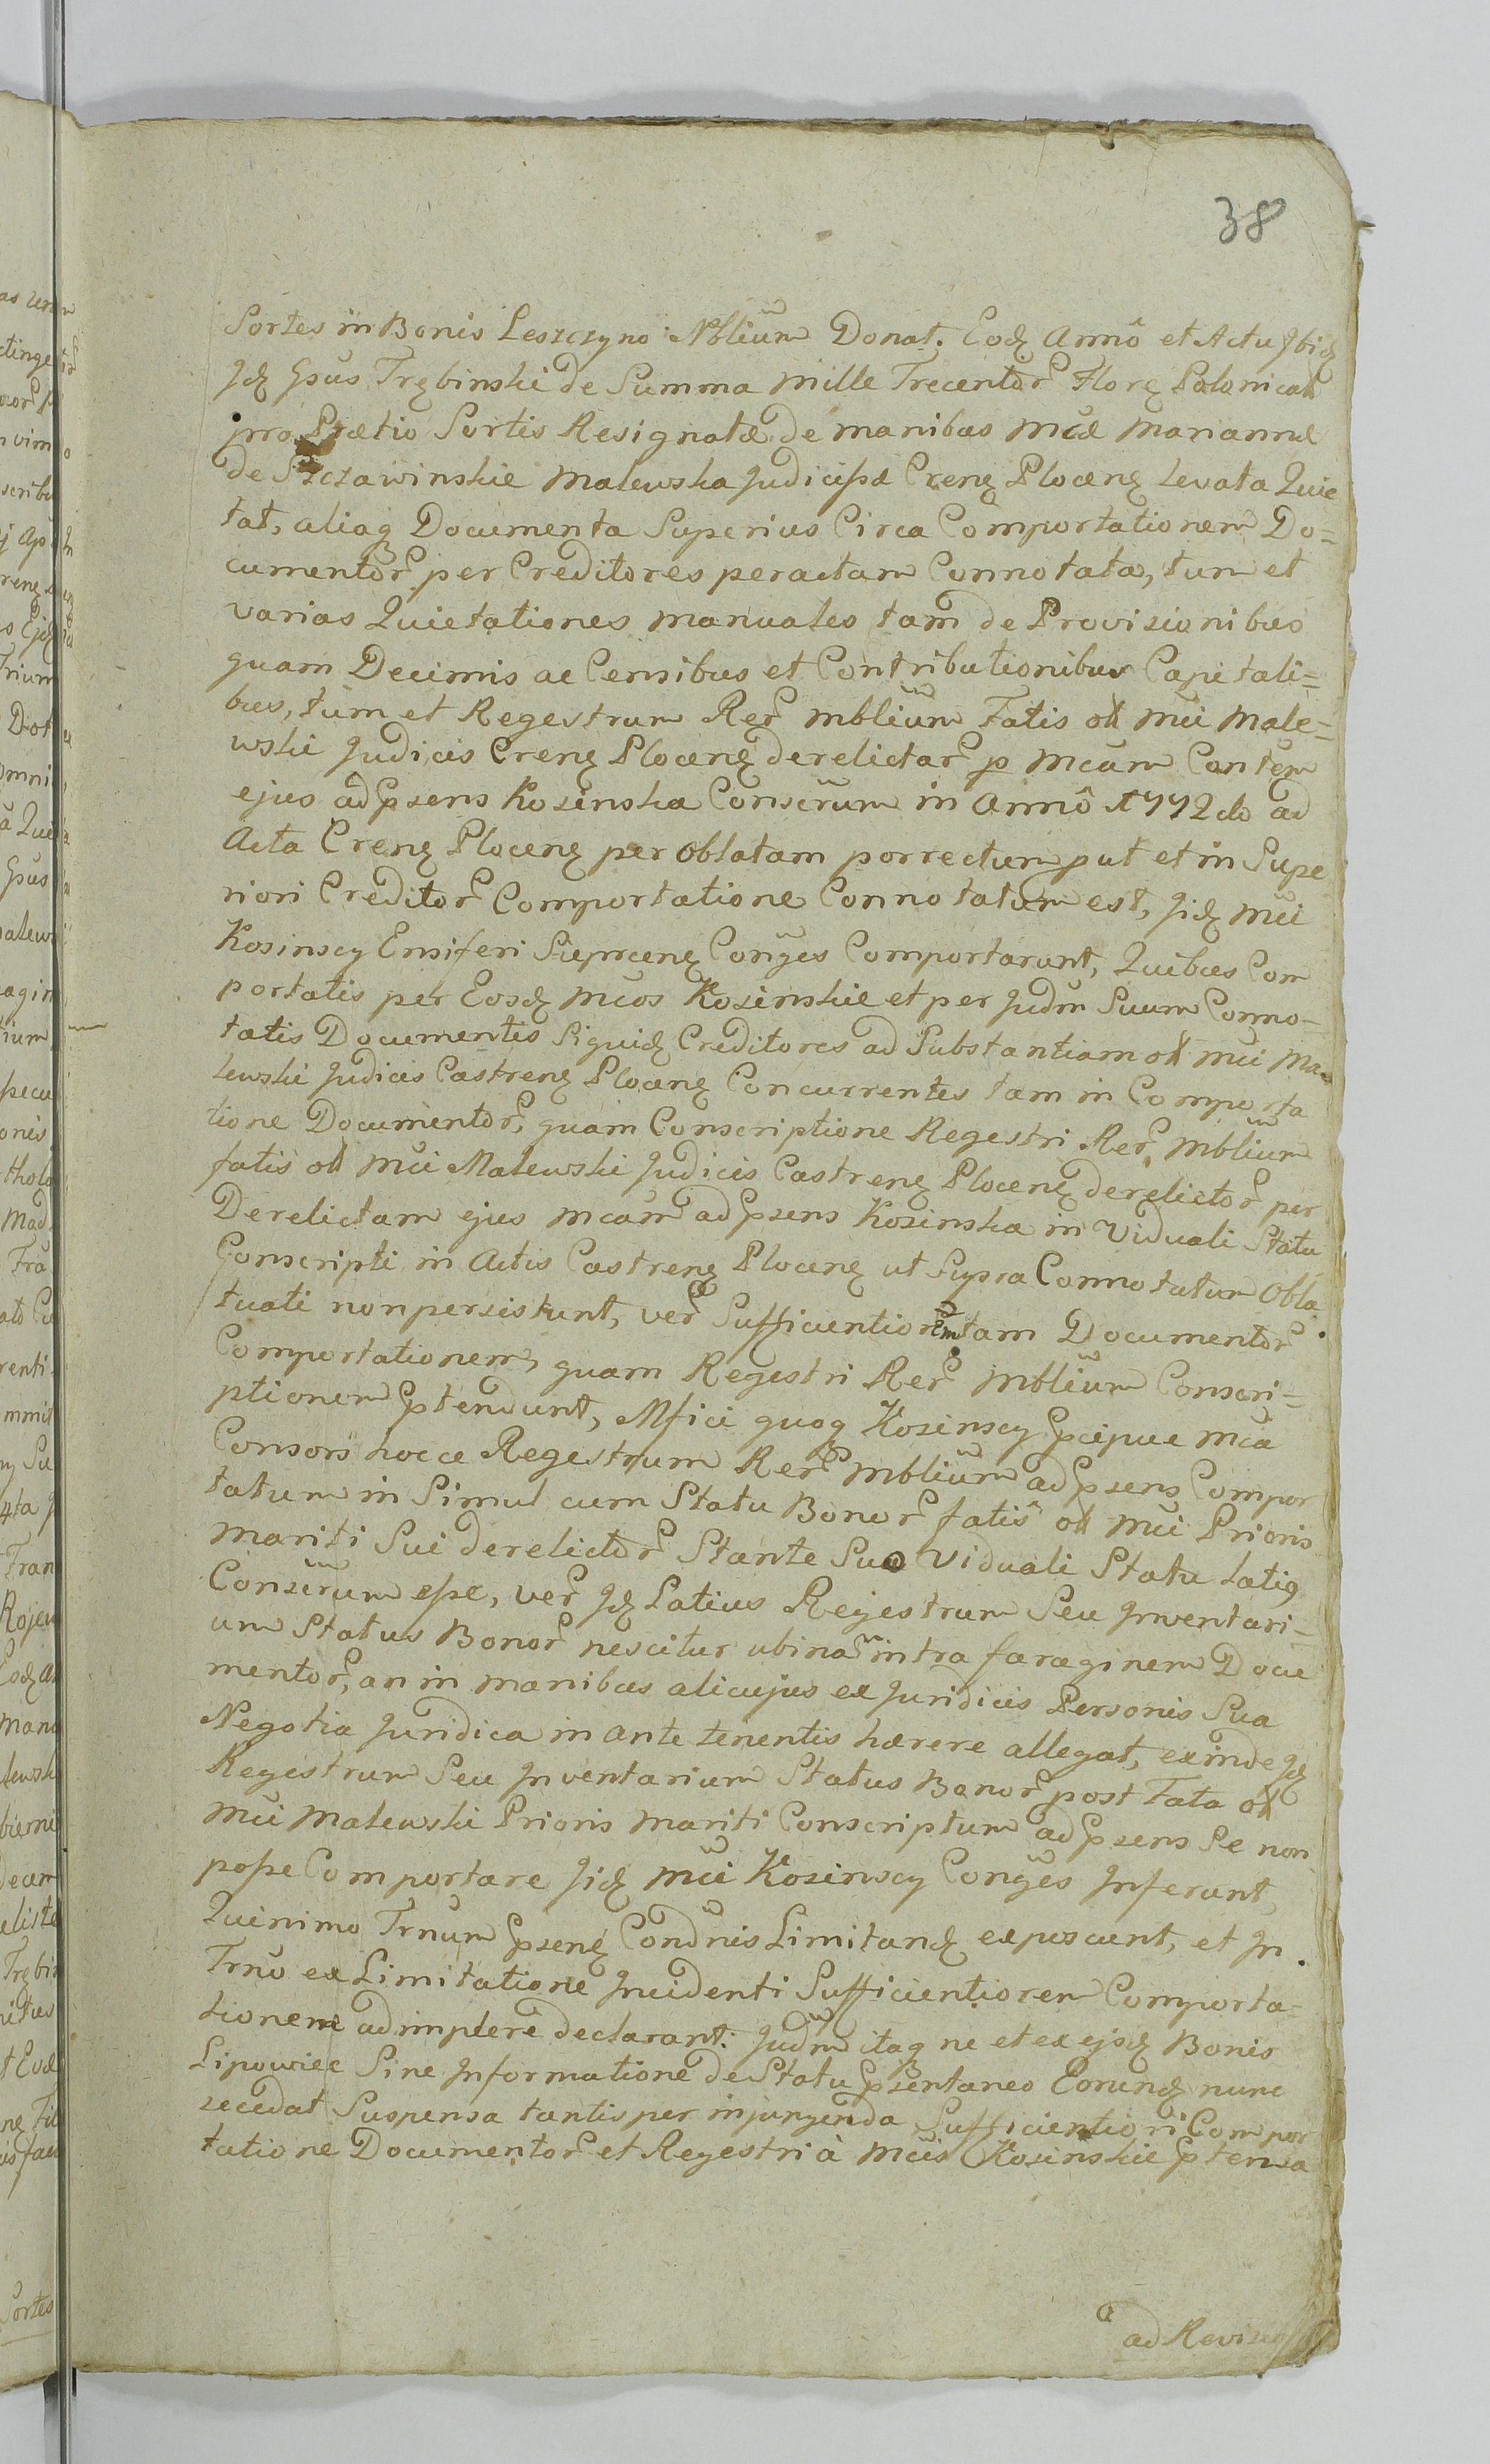 38
Sortes in Bonis Leszczyno Nblium Donat. Eod Anno et Actu Ibid
Id Gsus Trębinski de Summa Mille Trecentor Flore Polonicall
pro Prætio Sortis Resignatæ de manibus Mcæ Mariannæ
de Szczawinskie Malewska Judicissæ Crenę Plocenę Levata Quie
tat, aliaq Documenta Superius Circa Comportationem Do=
cumentor per Creditores peractam Connotata, tum et
varias Quietationes manuales tam de Provisionibus
quam Decimis ac Censibus et Contributionibus Capitali=
bus, tum et Regestrum Rer mblium Fatis oll Mci Male=
wski Judicis Crenę Plocenę derelictar p Mcam Contem
ejus ad Psens Kosinska Conscrum in Anno 1772do ad
Acta Crenę Plocenę per Oblatam porrectum put et in Supe
riori Creditor Comportatione Connotatum est, Iid Mci
Kosinscy Ensiferi Sieprcenę Conges Comportarunt, Quibus Com
portatis per Eosd Mcos Kosinskie et per Judm Suum Conno-
tatis Documentis Siquid Creditores ad Substantiam oll Mci Ma-
lewski Judicis Castrenę Plocenę Concurrentes tam in Comporta
tione Documentor, quam Conscriptione Regestri Rer mblium
fatis oll Mci Malewski Judicis Castrenę Plocenę derelictor per
Derelictam ejus Mcam ad Psens Kosinska in Viduali Statu
Conscripti in Actis Castrenę Plocenę ut Supra Connotatum Obla
tuati non persistunt, ver Sufficientiorem tam Documentor
Comportationem, quam Regestri Rer mblium Conscri=
ptionem Ptendunt, Mfici quoq Kosinscy Pcipue Mca
Consors hocce Regestrum Rer mblium ad Psens Compor
tatum in Simul cum Statu Bonor fatis oll Mci Prioris
Mariti Sui derelictor Stante Suo Viduali Statu Latiq
Conscrum esse, ver Id Latius Regestrum Seu Inventari=
um Status Bonor nescitur ubinam intra faraginem Docu
mentor, an in manibus alicujus ex Juridicis Personis Sua
Negotia Juridica in ante tenentis hærere allegat, exinde Id
Regestrum Seu Inventarium Status Bonor post Fata oll
Mci Malewski Prioris Mariti Conscriptum ad Psens Se non
posse Comportare Iid Mci Kosinscy Conges Inferunt,
Quinimo Trnum Psenę Condnis Limitand exposcunt, et In
Trno ex Limitatione Incidenti Sufficientiorem Comporta=
tionem adimplere declarant. Judm itaq ne et ex ejsd Bonis
Lipowiec Sine Informatione de Statu Psentaneo Eorund nunc
recedat Suspensa tantisper injungenda Sufficientiori Compor
tatione Documentor et Regestri à Mcis Kosinskie Ptensa
ad